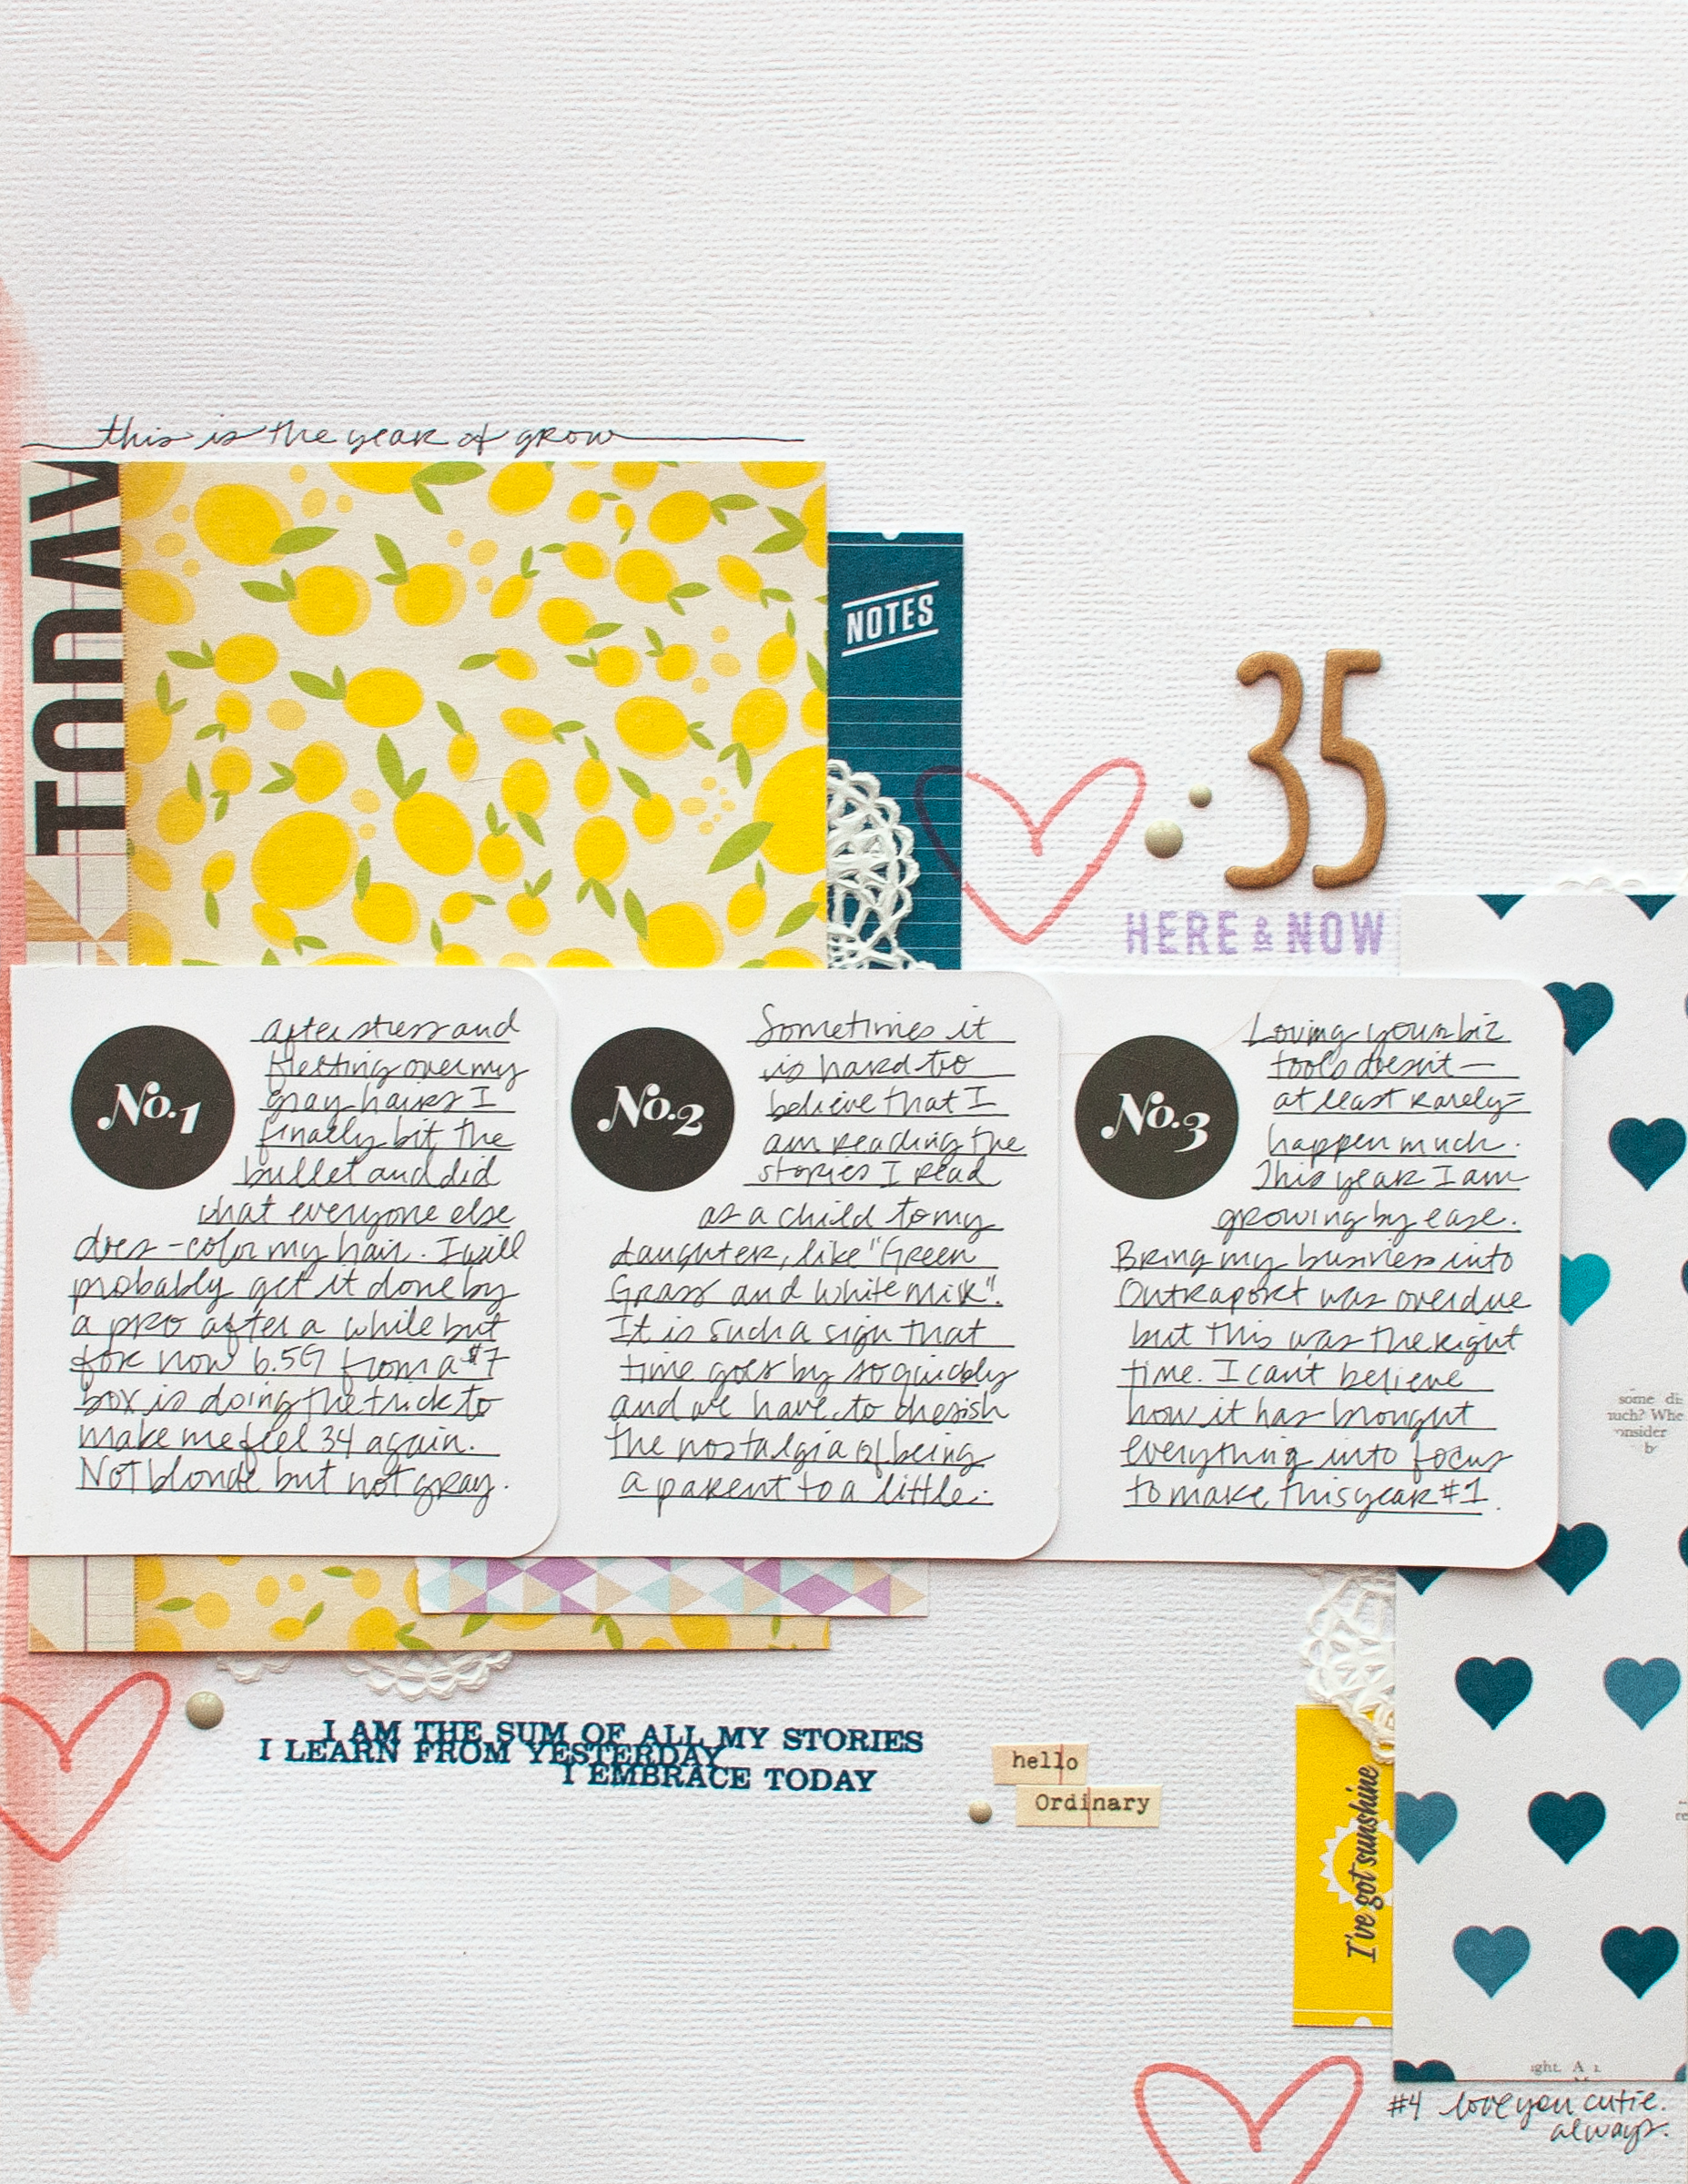 this is the year of grow
TODAY
NOTES
35
HERE & NOW
No. 1
after stress and
fretting over my
gray hairs I
finally bit the
bullet and did
what everyone else
does - color my hair. I will
probably get it done by
a pro after a while but
for now 6.5G from a $7
box is doing the trick to
make me feel 34 again.
Not blonde but not gray.
No. 2
Sometimes it
is hard to
believe that I
am reading the
stories I read
as a child to my
daughter, like "Green
Grass and White Milk".
It is such a sign that
time goes by so quickly
and we have to cherish
the nostalgia of being
a parent to a little.
No. 3
Loving your biz
tools doesn't —
at least rarely =
happen much.
This year I am
growing by ease.
Bring my business into
Ontraport was overdue
but this was the right
time. I can't believe
how it has brought
everything into focus
to make this year #1.
some di
uch? Whe
onsider
b
I AM THE SUM OF ALL MY STORIES
I LEARN FROM YESTERDAY
I EMBRACE TODAY
hello
Ordinary
I've got sunshine
ght. A
#4 love you cutie.
always.